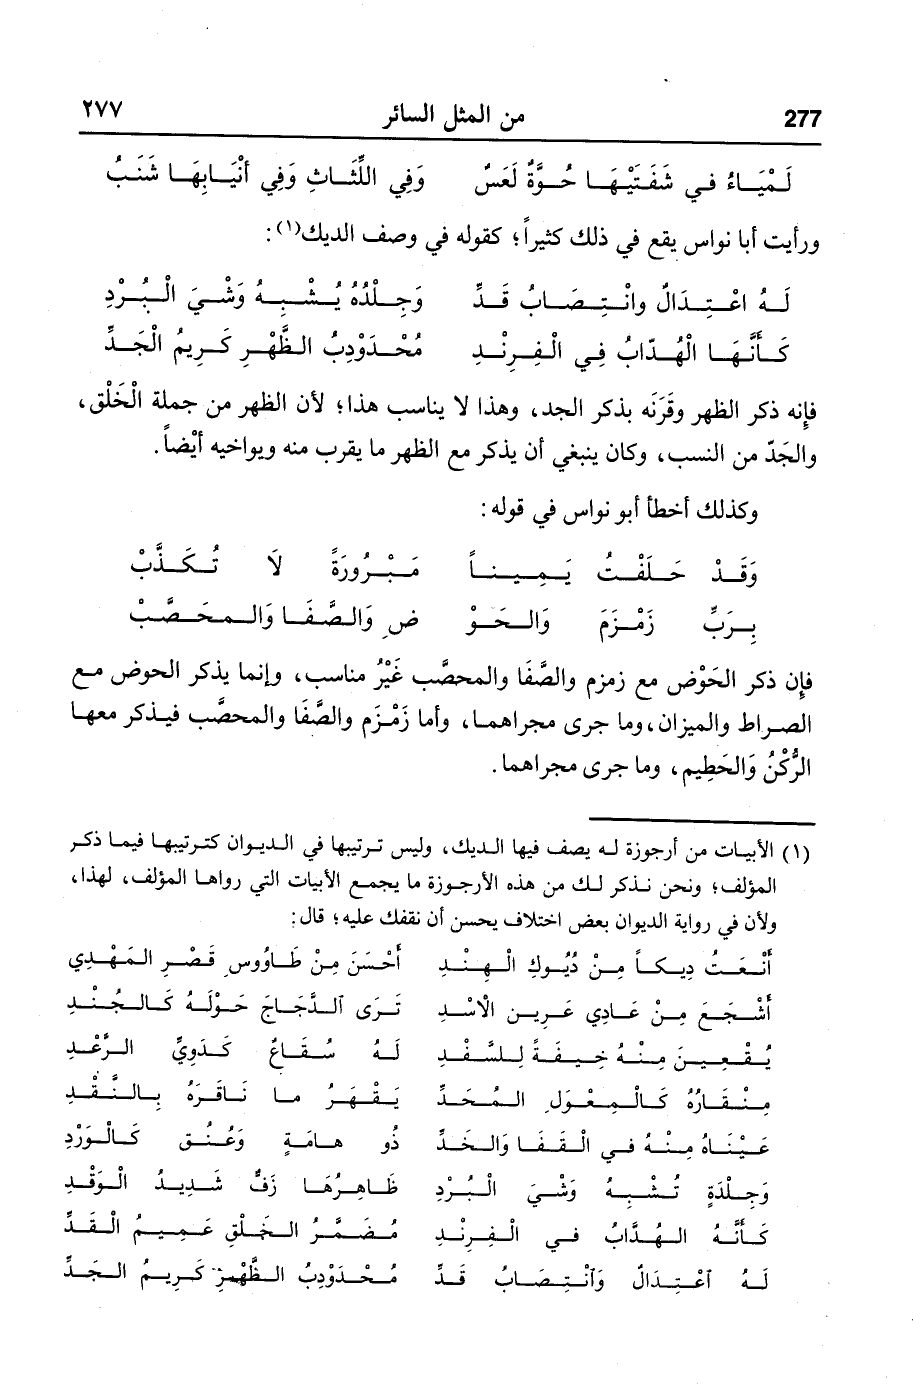 277 من المثل السائر ٢٧٧
لَمْيَاءُ في شَفَتَيْهَا حُوَّةٌ لَعَسٌ وَفِي اللِّثَاثِ وَفِي أَنْيَابِهَا شَنَبُ
ورأيت أبا نواس يقع في ذلك كثيراً؛ كقوله في وصف الديك(١):
لَهُ اعْتِدَالٌ وانْتِصَابُ قَدِّ وَجِلْدُهُ يُشْبِهُ وَشْيَ الْبُرْدِ
كَأَنَّهَا الْهُدَّابُ فِي الْفِرِنْدِ مُحْدَوْدِبُ الظَّهْرِ كَرِيمُ الْجَدِّ
فإنه ذكر الظهر وقَرَنَه بذكر الجد، وهذا لا يناسب هذا؛ لأن الظهر من جملة الْخَلْق،
والجَدّ من النسب، وكان ينبغي أن يذكر مع الظهر ما يقرب منه ويواخيه أيْضاً.
وكذلك أخطأ أبو نواس في قوله:
وَقَدْ حَلَفْتُ يَمِيناً مَبْرُورَةً لاَ تُكَذَّبْ
بِرَبِّ زَمْزَمَ وَالحَوْ ضِ وَالصَّفَا وَالمحَصَّبْ
فإن ذكر الحَوْض مع زمزم والصَّفَا والمحصَّب غَيْرُ مناسب، وإنما يذكر الحوض مع
الصراط والميزان، وما جرى مجراهما، وأما زَمْزَم والصَّفَا والمحصَّب فيذكر معها
الرُّكْنُ وَالحَطِيم، وما جرى مجراهما.
(١) الأبيات من أرجوزة له يصف فيها الديك، وليس ترتيبها في الديوان كترتيبها فيما ذكر
المؤلف؛ ونحن نذكر لك من هذه الأرجوزة ما يجمع الأبيات التي رواها المؤلف، لهذا،
ولأن في رواية الديوان بعض اختلاف يحسن أن نقفك عليه؛ قال:
أَنْعَتُ دِيكاً مِنْ دُيُوكِ الْهِنْدِ أَحْسَنَ مِنْ طَاوُوسِ قَصْرِ المَهْدِي
أَشْجَعَ مِنْ عَادِي عَرِينِ الْأسْدِ تَرَى الدَّجَاجَ حَوْلَهُ كَالجُنْدِ
يُقْعِينَ مِنْهُ خِيفَةً لِلسَّفْدِ لَهُ سُقَاعٌ كَدَوِيِّ الرَّعْدِ
مِنْقَارُهُ كَالْمِعْوَلِ المُحَدِّ يَقْهَرُ ما نَاقَرَهُ بِالنَّقْدِ
عَيْنَاهُ مِنْهُ فِي الْقَفَا وَالخَدِّ ذُو هَامَةٍ وَعُنُقٍ كَالْوَرْدِ
وَجِلْدَةٍ تُشْبِهُ وَشْيَ الْبُرْدِ ظَاهِرُهَا زَفٌّ شَدِيدُ الْوَقْدِ
كَأَنَّهُ الهُدَّابُ فِي الْفِرِنْدِ مُضَمَّرُ الخَلْقِ عَمِيمُ الْقَدِّ
لَهُ اعْتِدَالٌ وَانْتِصَابُ قَدِّ مُحْدَوْدِبُ الظَّهْرِ كَرِيمُ الجَدِّ